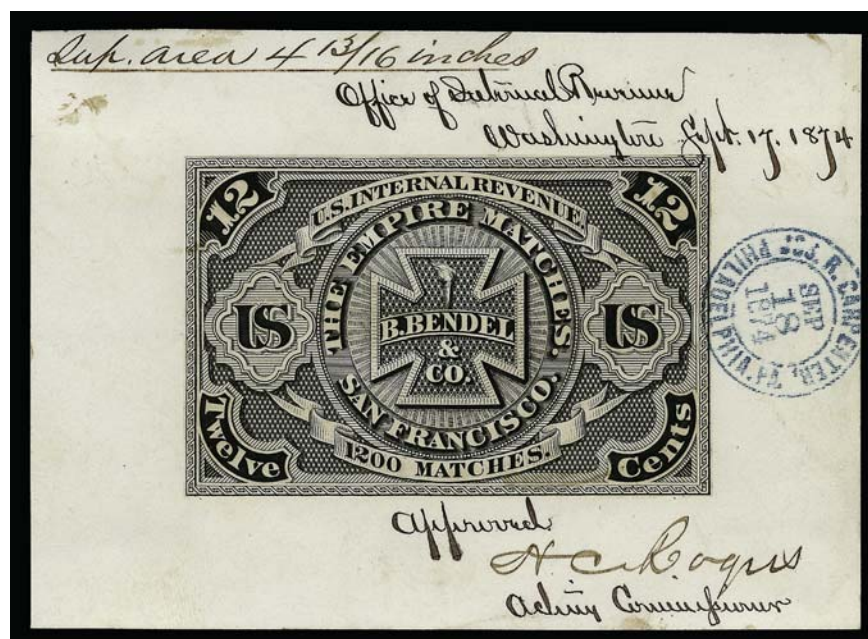 Sup. area 4 13/16 inches
Office of Internal Revenue
Washington Sept. 17. 1874
12
12
U.S. INTERNAL REVENUE.
THE EMPIRE MATCHES.
US
US
B. BENDEL
&
CO.
SAN FRANCISCO.
1200 MATCHES.
Twelve
Cents
JOS. R. CARPENTER,
SEP
18
1874
PHILADELPHIA. PA
Approved
H C Rogers
Acting Commissioner